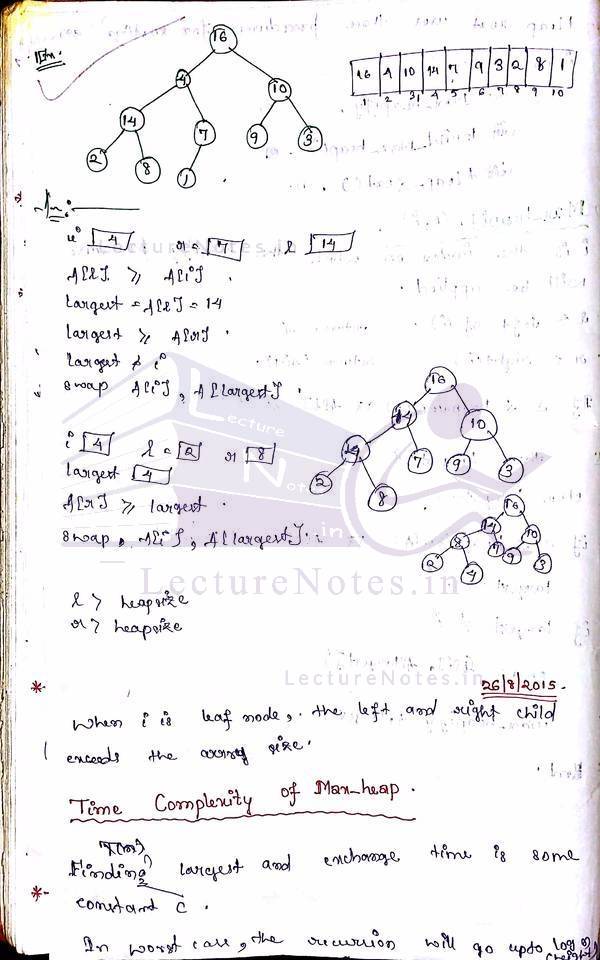 Ex.
16
4 10
14 7 9 3
2 8 1
16 4 10 14 7 9 3 2 8 1
1 2 3 4 5 6 7 8 9 10
Ans:
i 4 r = 7 l 14
LectureNotes.in
A[l] ≥ A[i].
largest = A[l] = 14
largest ≥ A[r].
largest ≠ i
swap A[i], A[largest].
16
14 10
7 9 3
2 8
i 4 l = 2 r 8
largest 4
A[r] ≥ largest.
swap, A[i], A[largest].
Lecture
Notes
.in
16
14 10
8 7 9 3
2 4
LectureNotes.in
l > heapsize
r > heapsize
LectureNotes.in
26/8/2015.
When i is leaf node, the left and right child
exceeds the array size.
Time Complexity of Max-heap.
T(n)
Finding largest and exchange time is some
constant c.
In worst case, the recursion will go upto log n
(height)